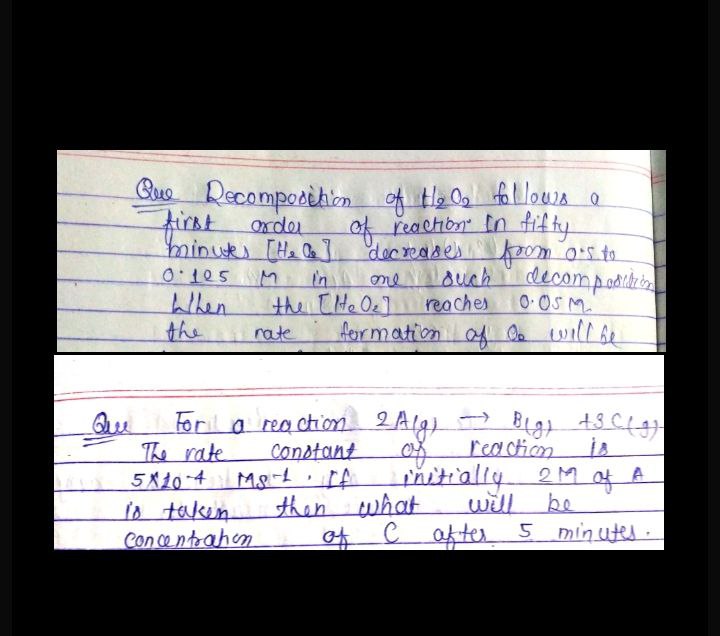 Que Decomposition of H2O2 follows a
first order of reaction. In fifty
minutes [H2O2] decreases from 0.5 to
0.125 M in one such decomposition
When the [H2O2] reaches 0.05 M
the rate formation of O2 will be
Que For a reaction 2A(g) → B(g) +3C(g)
The rate constant of reaction is
5×10-4 MS-1. If initially 2M of A
is taken then what will be
concentration of C after 5 minutes.